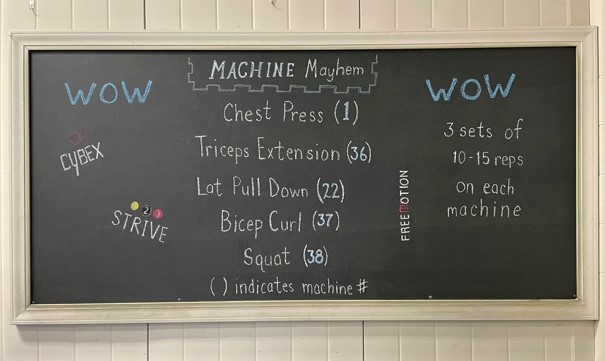 MACHINE Mayhem
WOW
WOW
Chest Press (1)
Triceps Extension (36)
Lat Pull Down (22)
Bicep Curl (37)
Squat (38)
( ) indicates machine #
CYBEX
1 2 3
STRIVE
FREEMOTION
3 sets of
10-15 reps
on each
machine